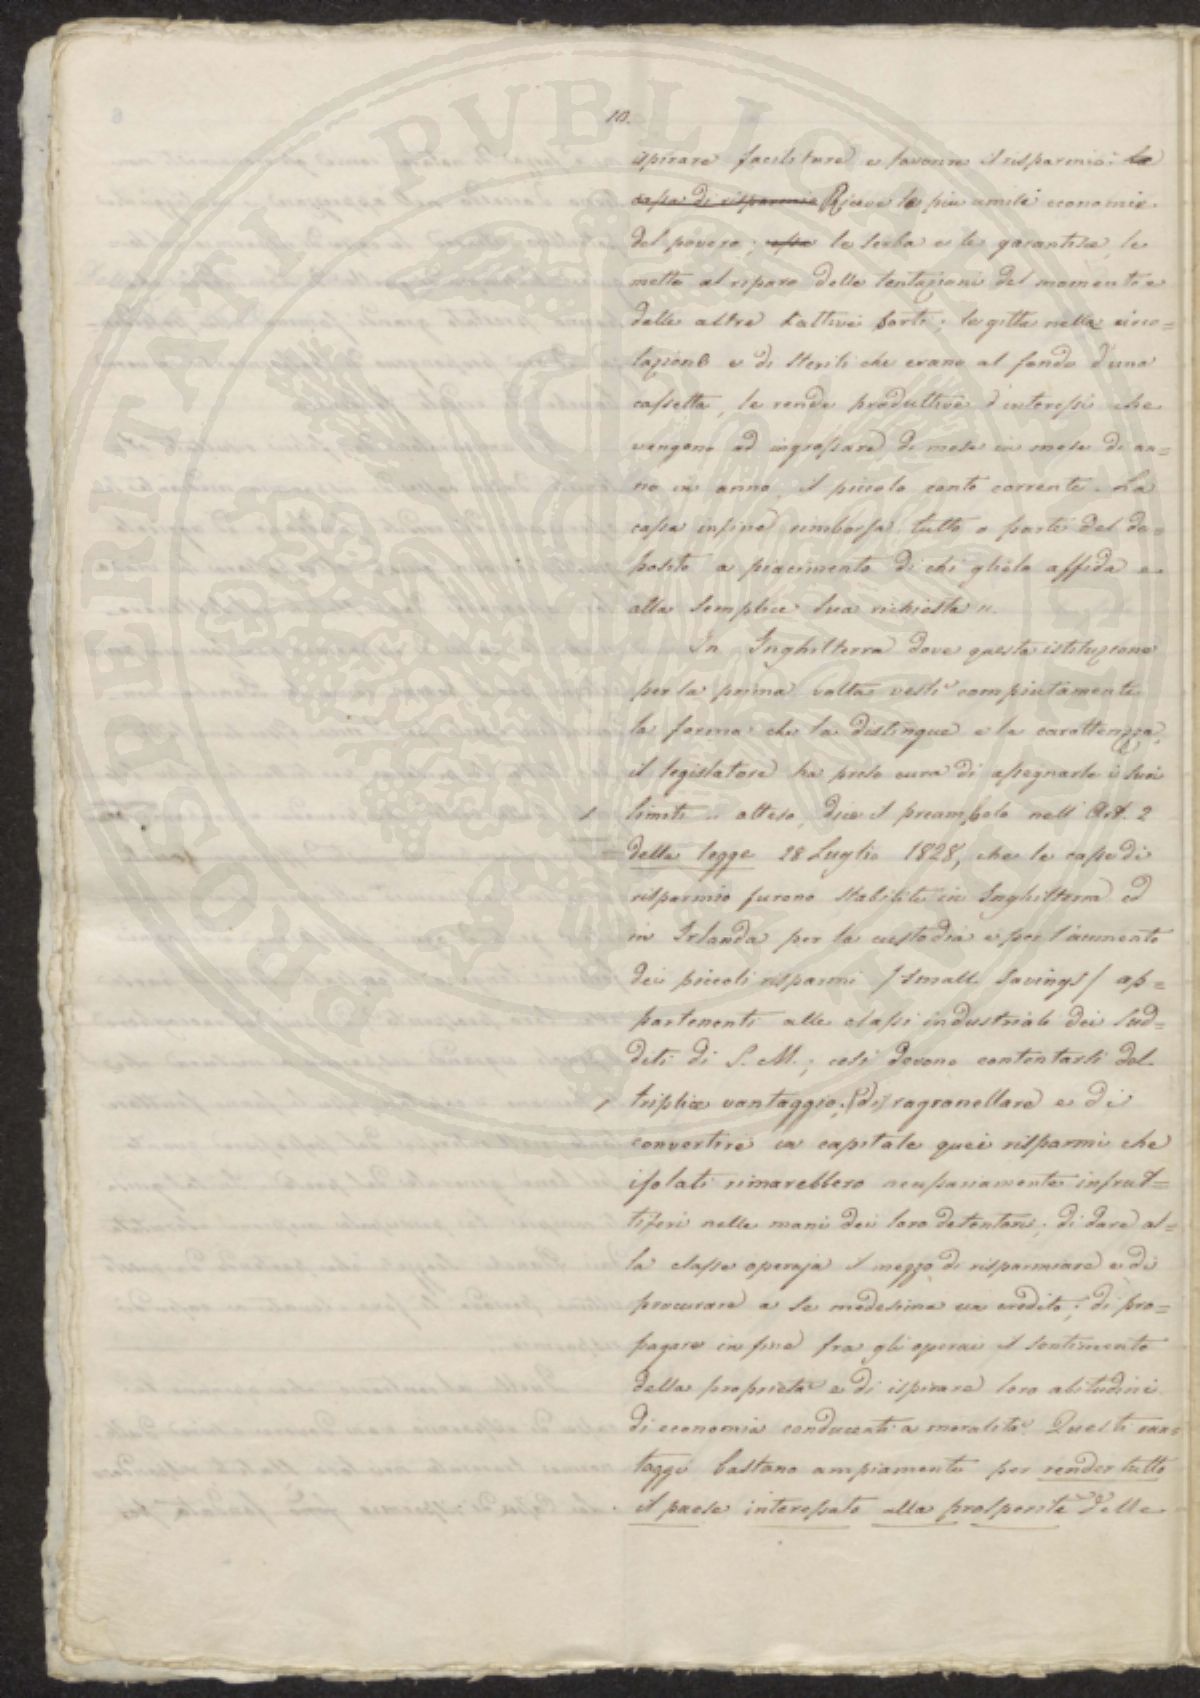 10.
ispirare facilitare e favorire il risparmio: la
cassa di risparmio Riceve le più umili economie
del povero; essa le serba e le garantisce, le
mette al riparo delle tentazioni del momento e
delle altre cattive sorti; le gitta nella circo=
lazione e di sterili che erano al fondo d'una
cassetta, le rende produttive d'interessi che
vengono ad ingrossare di mese in mese di an=
no in anno, il piccolo conto corrente. La
cassa infine rimborsa tutto o parte del de=
posito a piacimento di chi glielo affida e
alla semplice sua richiesta ".
In Inghilterra dove questa istituzione
per la prima volta vestì compiutamente
la forma che la distingue e la caratterizza,
il legislatore ha preso cura di assegnarle i suoi
limiti " atteso, dice il preambolo nell' Art. 2
della legge 28 Luglio 1828, che le casse di
risparmio furono stabilite in Inghilterra ed
in Irlanda per la custodia e per l'aumento
dei piccoli risparmi /small savings/ ap=
partenenti alle classi industriali dei sud=
diti di S. M.; così devono contentarsi del
triplice vantaggio: di ragranellare e di
convertire in capitale quei risparmi che
isolati rimarebbero necessariamente infrut=
tiferi nelle mani dei loro detentori; di dare al=
la classe operaja il mezzo di risparmiare e di
procurare a se medesima un credito; di pro=
pagare in fine fra gli operai il sentimento
della proprietà e di ispirare loro abitudini
di economia conducenti a moralità. Questi van=
taggi bastano ampiamente per render tutto
il paese interessato alla prosperità delle